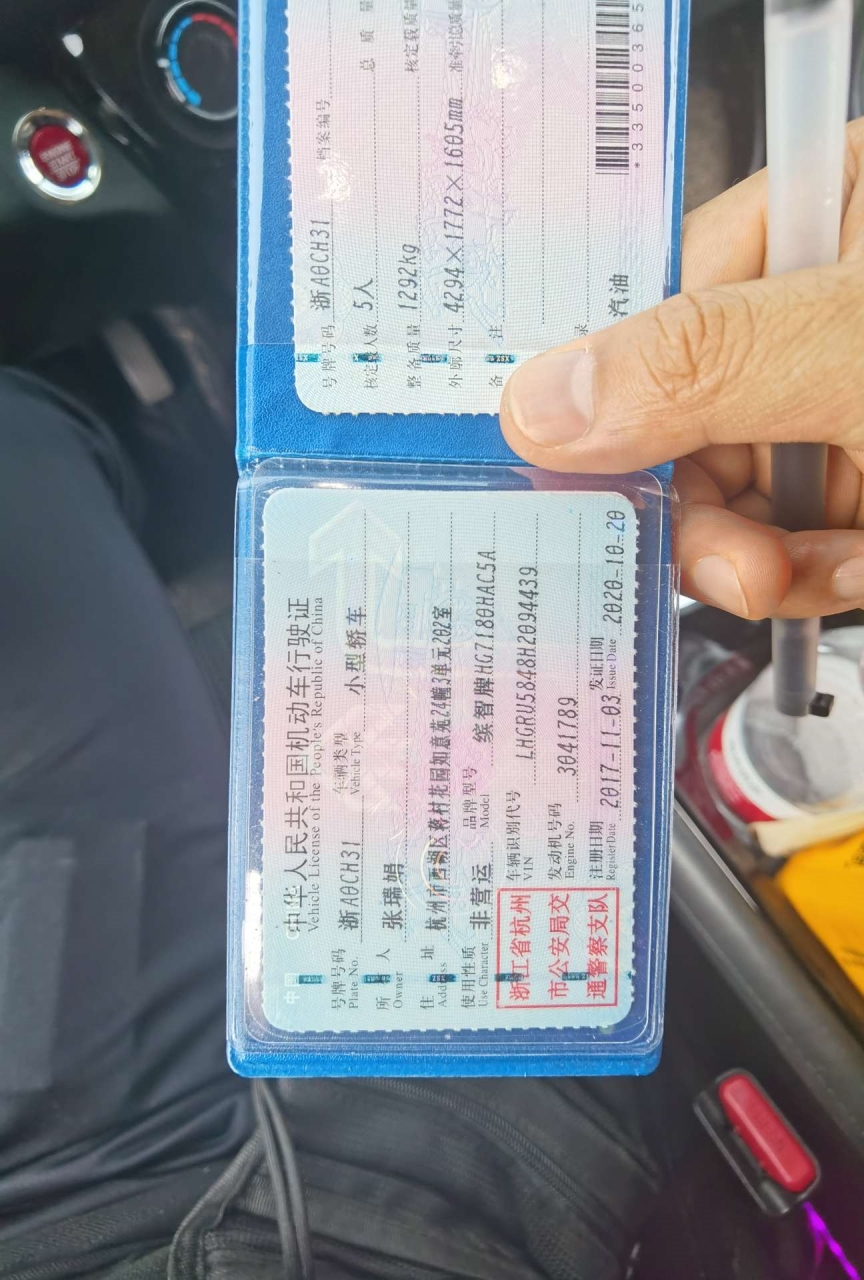 中华人民共和国机动车行驶证
Vehicle License of the People's Republic of China
号牌号码 浙A0CH31 车辆类型 小型轿车
Plate No. Vehicle Type
所 有 人 张瑞娟
Owner
住 址 杭州市西湖区蒋村花园如意苑24幢3单元202室
Address
使用性质 非营运 品牌型号 缤智牌HG7180HAC5A
Use Character Model
浙江省杭州
市公安局交
通警察支队
车辆识别代号 LHGRU5848H2094439
VIN
发动机号码 3041789
Engine No.
注册日期 2017-11-03 发证日期 2020-10-20
Register Date Issue Date
号牌号码 浙A0CH31 档案编号
核定载人数 5人 总 质 量
整备质量 1292kg 核定载质量
外廓尺寸 4294×1772×1605mm 准牵引总质量
备 注
录
汽油
*33500365